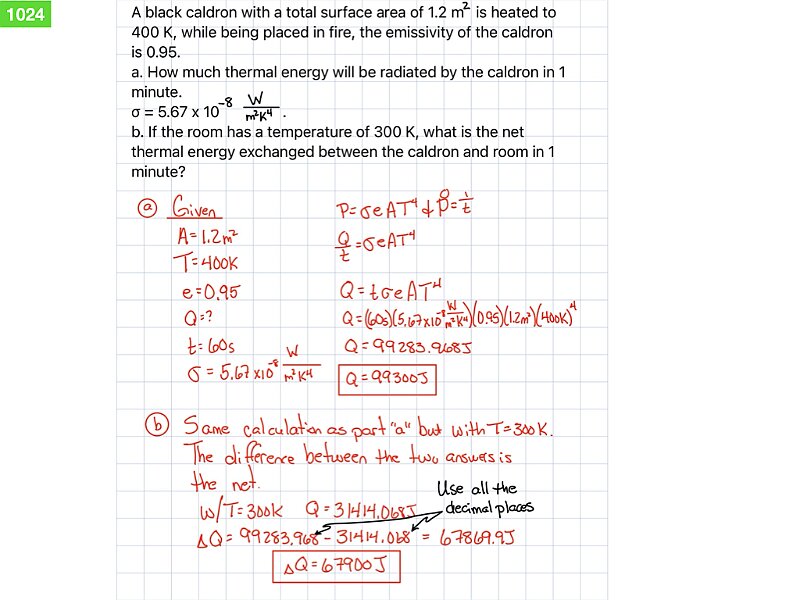 1024
A black caldron with a total surface area of 1.2 m² is heated to
400 K, while being placed in fire, the emissivity of the caldron
is 0.95.
a. How much thermal energy will be radiated by the caldron in 1
minute.
σ = 5.67 x 10⁻⁸ W/m²K⁴ .
b. If the room has a temperature of 300 K, what is the net
thermal energy exchanged between the caldron and room in 1
minute?
ⓐ Given
A=1.2m²
T=400K
e=0.95
Q=?
t=60s
σ = 5.67 x10⁻⁸ W/m²K⁴
P=σeAT⁴ & P=Q/t
Q/t=σeAT⁴
Q=tσeAT⁴
Q=(60s)(5.67x10⁻⁸ W/m²K⁴)(0.95)(1.2m²)(400K)⁴
Q=99283.968J
Q=99300J
ⓑ Same calculation as part "a" but with T=300K.
The difference between the two answers is
the net.
W/T=300K Q=31414.068J
Use all the
decimal places
ΔQ=99283.968-31414.068 = 67869.9J
ΔQ=67900J